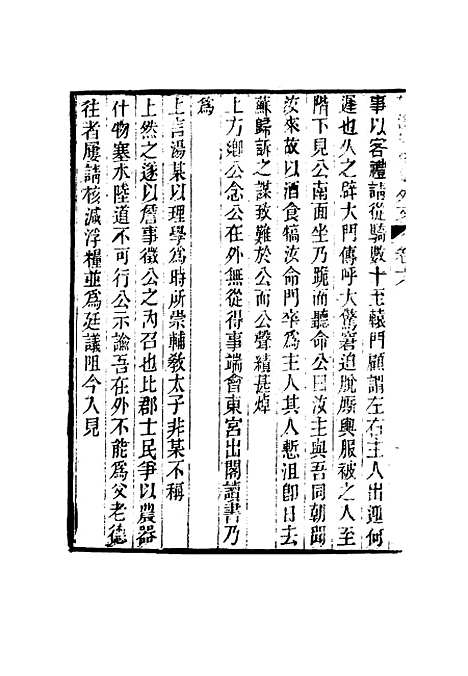 事以客禮請從騎數十至轅門顧謂左右主人出迎何
遲也久之辟大門傳呼大驚窘迫脫廝輿服被之人至
階下見公南面坐乃跪而聽命公曰汝主與吾同朝聞
汝來故以酒食犒汝命門卒爲主人其人慙沮卽日去
蘇歸訴之謀致難於公而公聲績甚焯
上方鄉公念公在外無從得事端會東宮出閣讀書乃
爲
上言湯某以理學爲時所崇輔敎太子非某不稱
上然之遂以詹事徵公之內召也比郡士民爭以農器
什物塞水陸道不可行公示諭吾在外不能爲父老德
往者屢請核減浮糧並爲廷議阻今入見